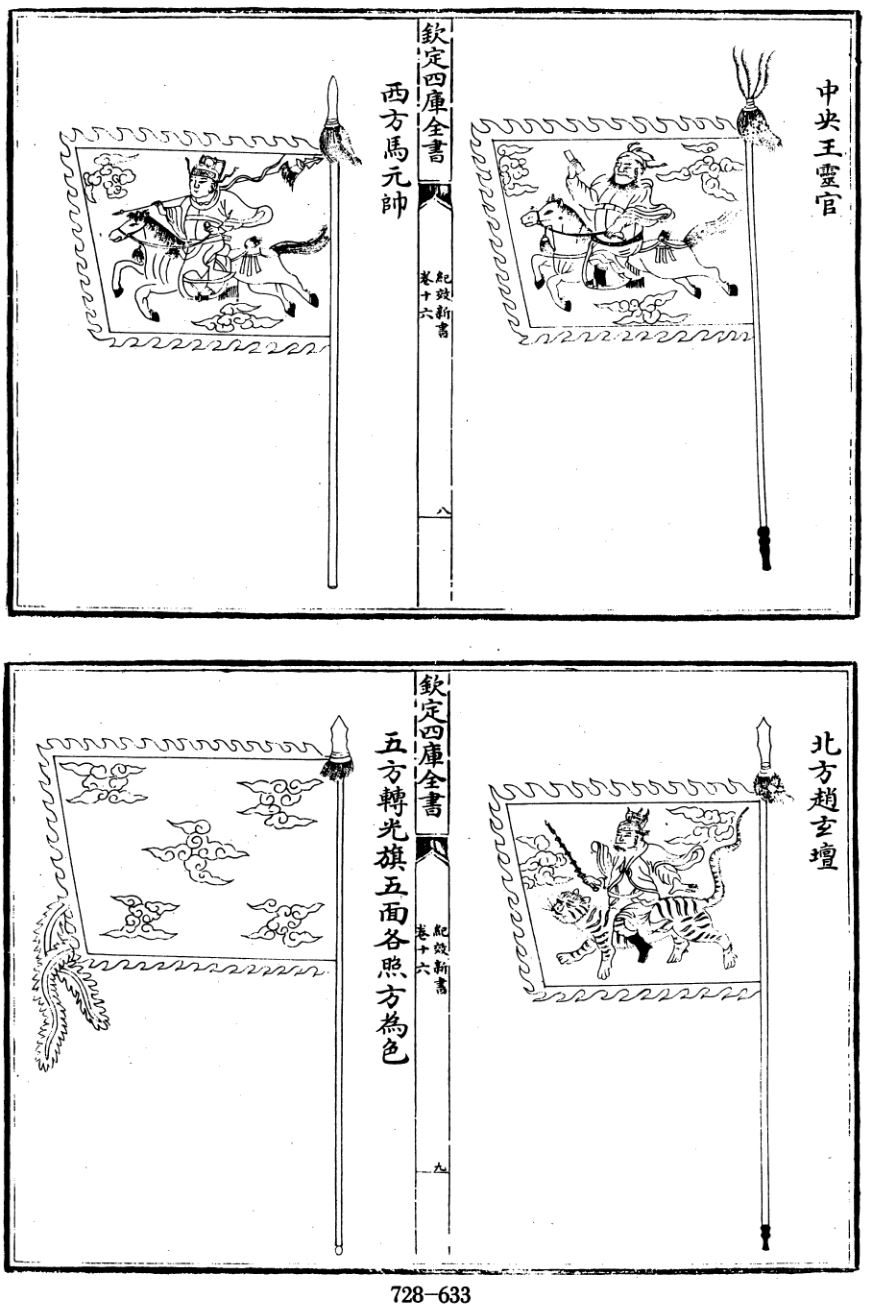 中央王靈官
欽定四庫全書
紀效新書
卷十六
八
西方馬元帥
北方趙玄壇
欽定四庫全書
紀效新書
卷十六
九
五方轉光旗五面各照方為色
728-633